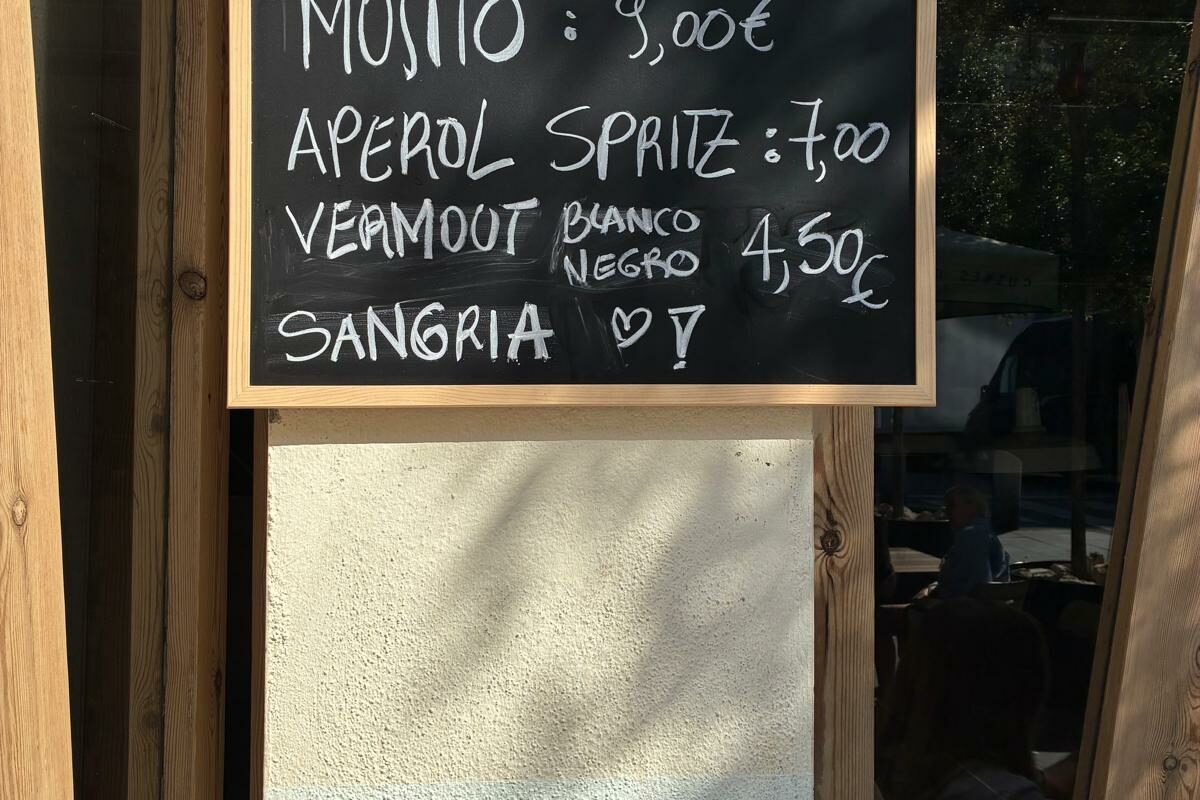 MOJITO : 9,00€
APEROL SPRITZ : 7,00
VERMOUT BLANCO NEGRO 4,50€
SANGRIA ♡ !